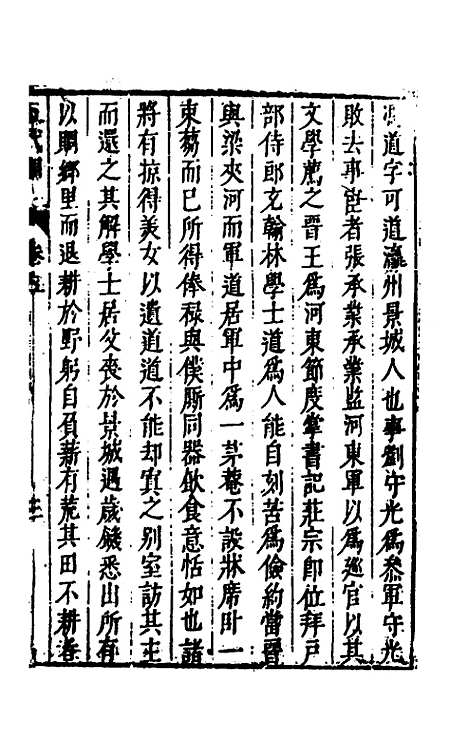 馮道字可道瀛州景城人也事劉守光爲叅軍守光
敗去事宦者張承業承業監河東軍以爲廵官以其
文學薦之晉王爲河東節度掌書記莊宗即位拜戸
部侍郎充翰林學士道爲人能自刻苦爲儉約當晉
與梁夾河而軍道居軍中爲一茅菴不設牀席卧一
束蒭而已所得俸祿與僕厮同器飲食意恬如也諸
將有掠得美女以遺道道不能却寘之别室訪其主
而還之其解學士居父喪於景城遇歲饑悉出所有
以賙鄉里而退耕於野躬自負薪有荒其田不耕者
五代 卷